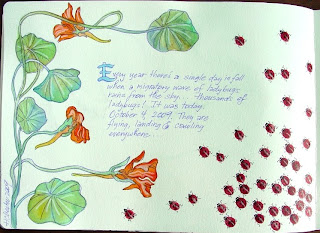 Every year there's a single day in fall
when a migratory wave of ladybugs
rains from the sky... thousands of
ladybugs! It was today,
October 9, 2009. They are
flying, landing & crawling
everywhere...